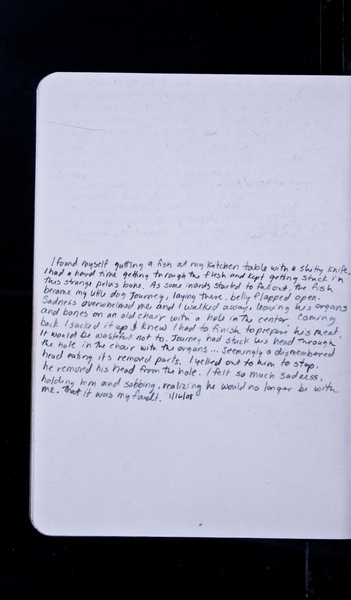 I found myself gutting a fish at my kitchen table with a shitty knife.
I had a hard time getting through the flesh and kept getting stuck in
this strange pelvis bone. As some inards started to fall out, the fish
became my little dog Journey, laying there, belly flapped open.
Sadness overwhelmed me and I walked away, leaving his organs
and bones on an old chair with a hole in the center. Coming
back I sucked it up & knew I had to finish to prepare his meat.
It would be wasteful not to. Journey had stuck his head through
the hole in the chair with the organs... seemingly a dismembered
head eating its removed parts. I yelled out to him to stop,
he removed his head from the hole. I felt so much sadness,
holding him and sobbing, realizing he would no longer be with
me. That it was my fault. 1/16/08